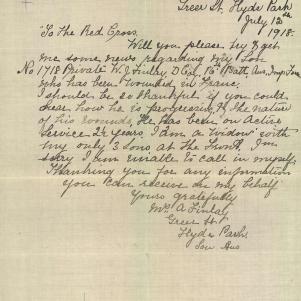 Greer St. Hyde Park
July 12th
1918.
"To the Red Cross.
Will you please try & get
me some news regarding my Son
No 1718 Private W. J. Finlay D Coy. Batt, Aus, Imp, Force
who has been wounded in France,
I should be so thankful if you could
hear how he is progressing, & the nature
of his wounds, He has been on Active
Service 2½ years, I am a Widow with
my only 3 Sons at the Front, I'm
sorry I am unable to call in myself,
Thanking you for any information
you can receive on my behalf
Yours gratefully
Mrs A Finlay
Greer St
Hyde Park
Sou Aus